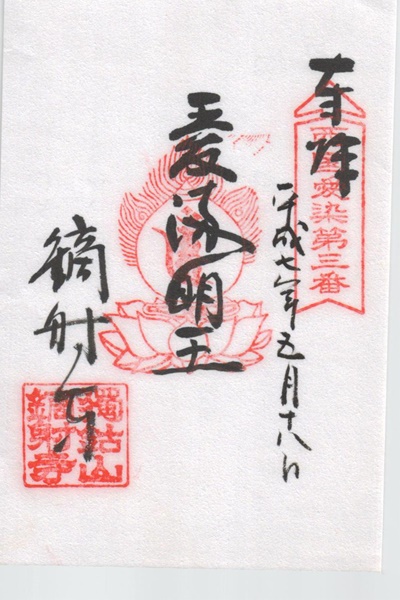 奉拝
西国愛染第三番
平成七年五月十八日
愛染明王
鏑射寺
独鈷山
鏑射寺